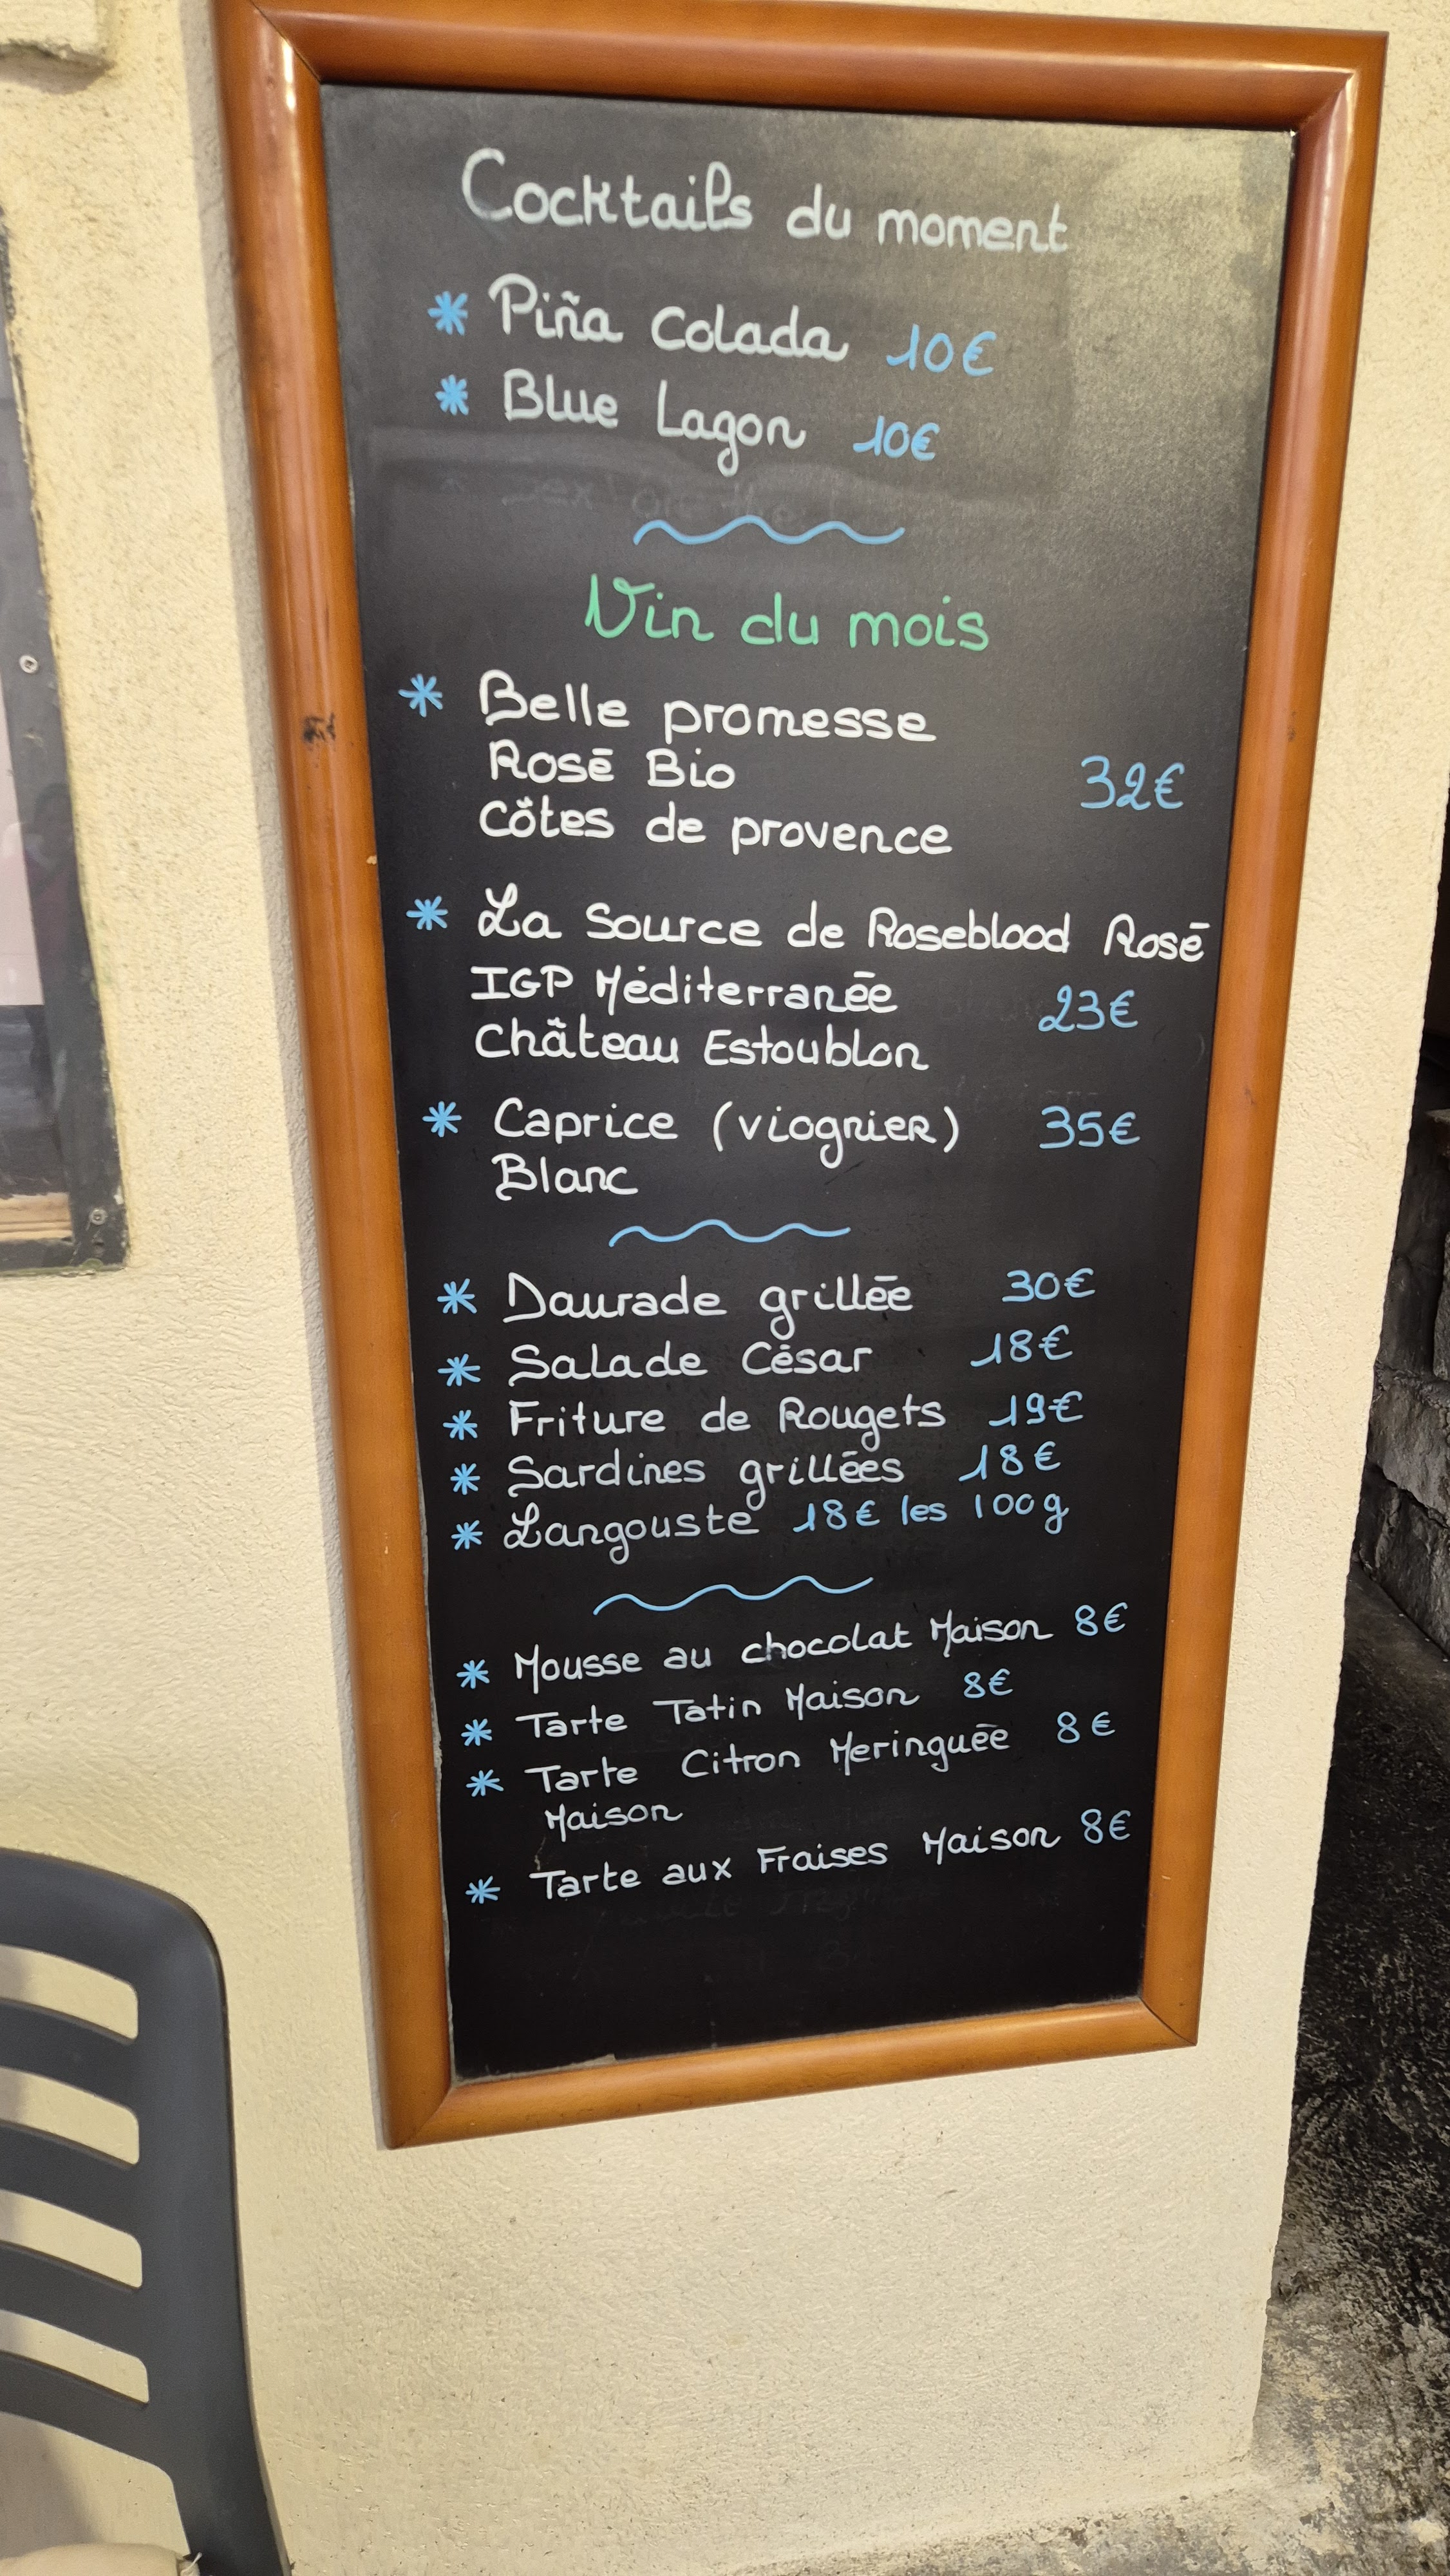 Cocktails du moment
* Piña Colada 10€
* Blue Lagon 10€
Vin du mois
* Belle promesse
Rosé Bio 32€
Côtes de provence
* La Source de Roseblood Rosé
IGP Méditerranée 23€
Château Estoublon
* Caprice (viognier) 35€
Blanc
* Daurade grillée 30€
* Salade César 18€
* Friture de Rougets 19€
* Sardines grillées 18€
* Langouste 18€ les 100g
* Mousse au chocolat Maison 8€
* Tarte Tatin Maison 8€
* Tarte Citron Meringuée 8€
Maison
* Tarte aux Fraises Maison 8€